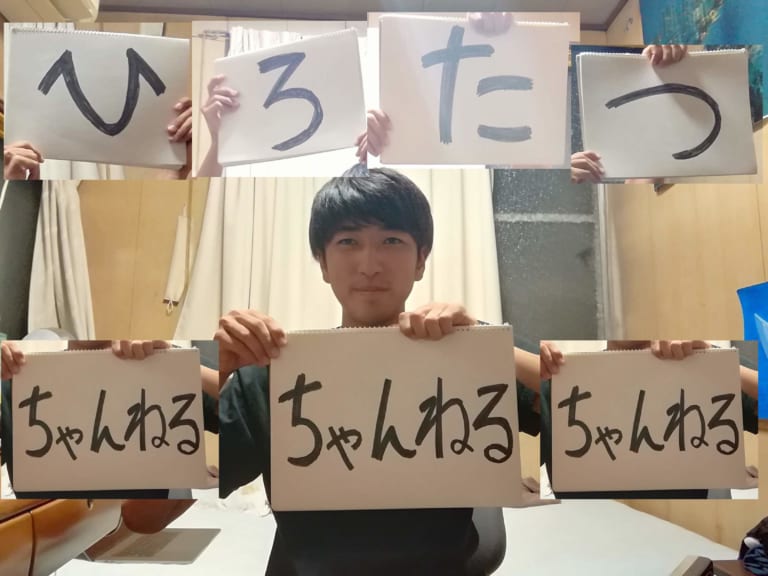 ひろたつ
ちゃんねる ちゃんねる ちゃんねる